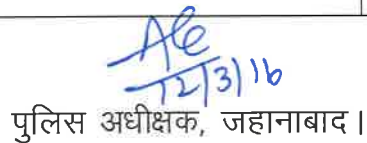 12/3/16
पुलिस अधीक्षक, जहानाबाद।